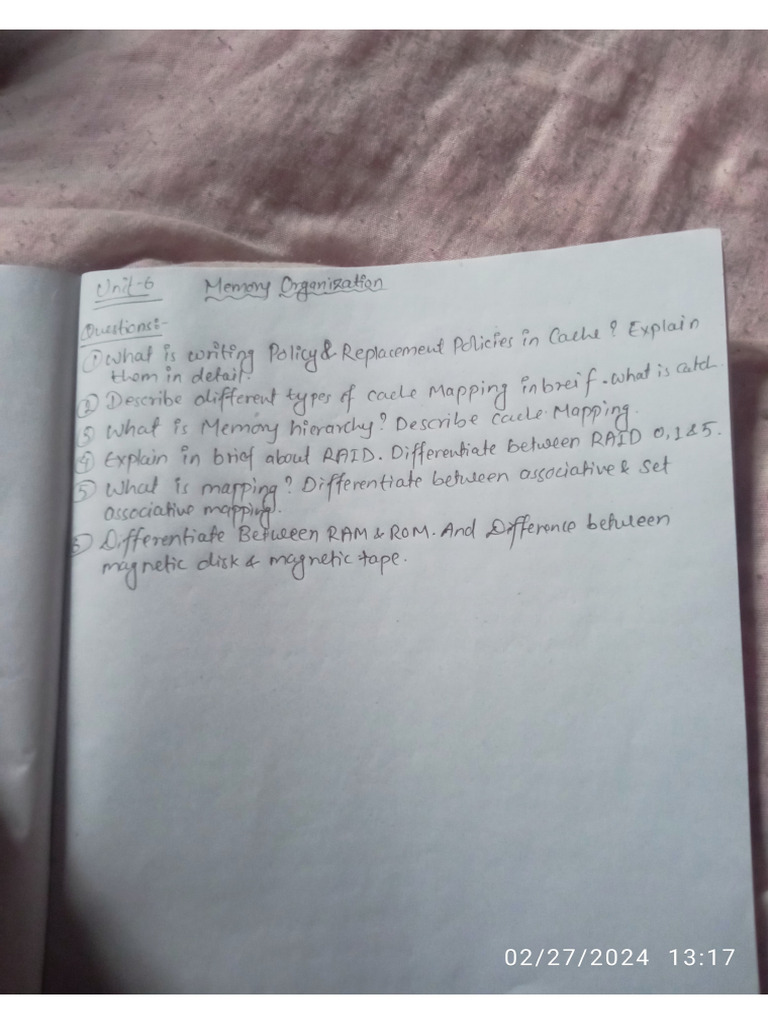 Unit-6 Memory Organization
Questions:-
① What is writing Policy & Replacement Policies in Cache? Explain
them in detail.
② Describe different types of cache Mapping in breif. What is catch.
③ What is Memory hierarchy? Describe cache Mapping.
④ Explain in brief about RAID. Differentiate between RAID 0, 1 & 5.
⑤ What is mapping? Differentiate between associative & set
associative mapping.
⑥ Differentiate Between RAM & ROM. And Difference between
magnetic disk & magnetic tape.
02/27/2024 13:17